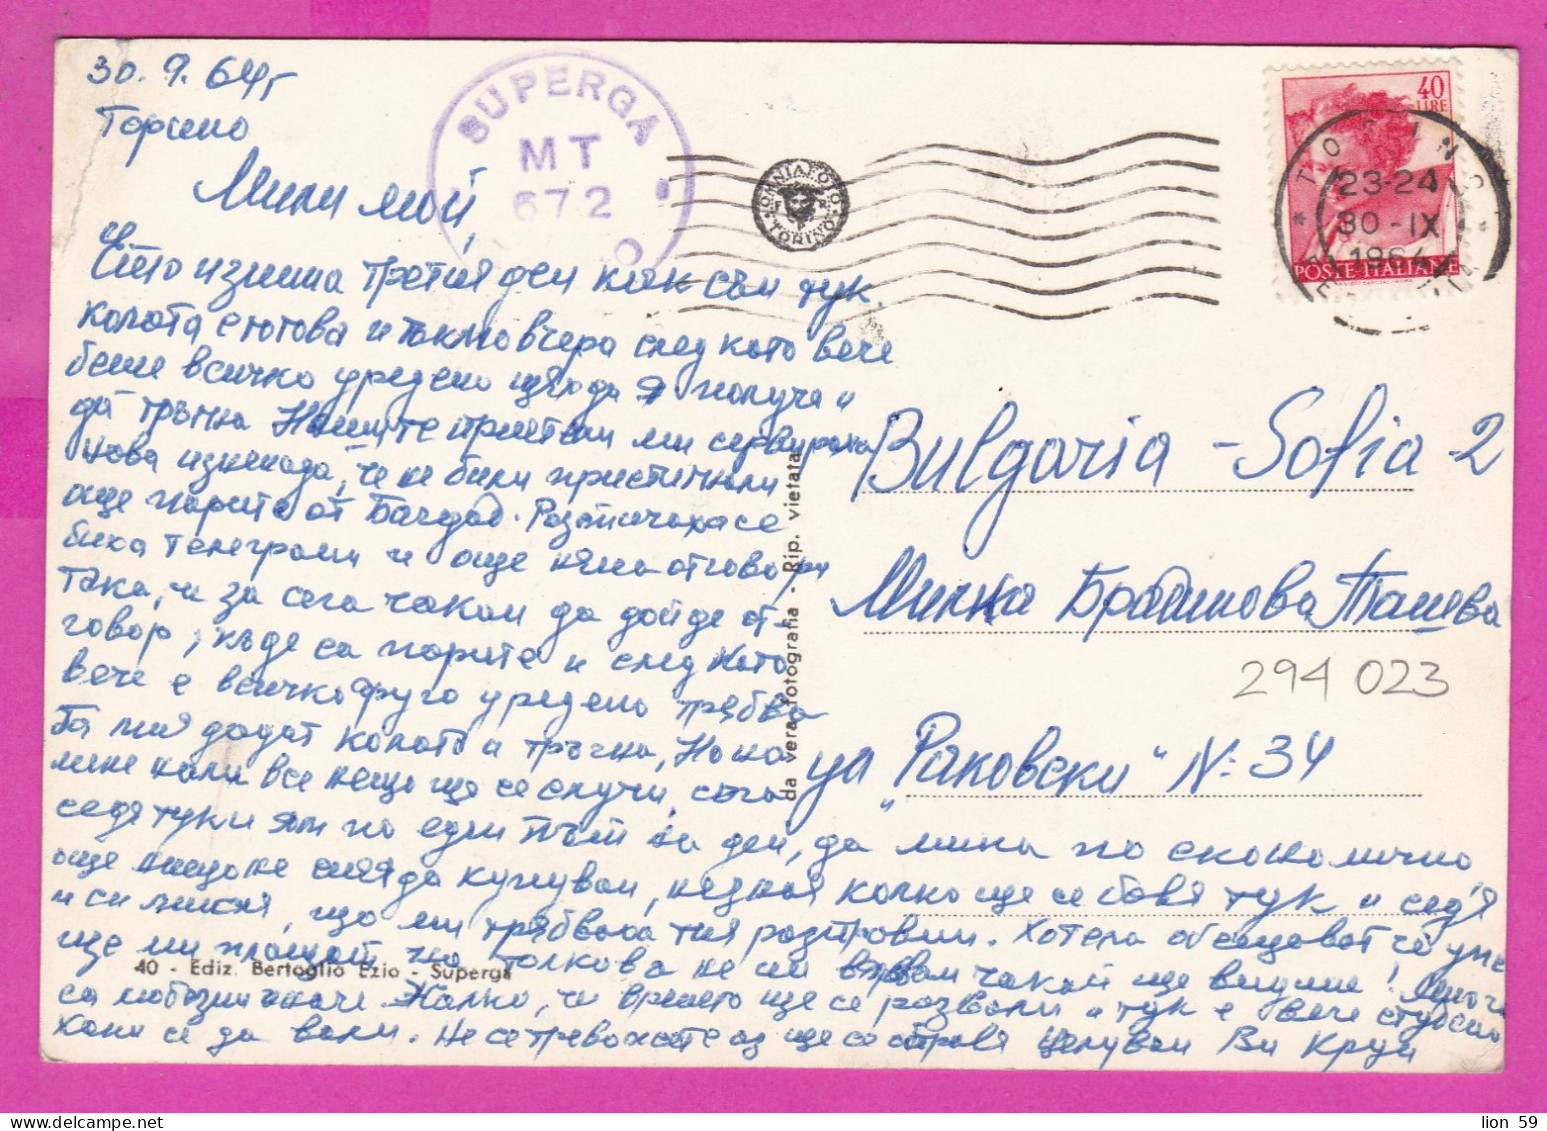 30. 9. 64 г
Торино
SUPERGA
MT
672
OMNIAFOTO
TORINO
40
LIRE
TORINO
23-24
30-IX
1964
POSTE ITALIANE
Мили мой,
Ето изминa третия ден как съм тук.
Колата е готова и токмо вчера след като вече
беше всичко уредено щях да я получа и
да тръгна Нашите приятели ми сервираха
нова изненада, че не били пристигнали
още парите от Багдад. Разтичаха се
биха телеграми и още няма отговор и
така, че за сега чакам да дойде от-
говор, къде са парите и след като
вече е всичко друго уредено трябва
да ми дадат колата и тръгна, но на
мине нали все нещо ще се случи, сега
седя тук и ям по един път на ден, да мина по економично
още нищо не смея да купувам, не зная колко ще се бавя тук и седя
и си мисля, що ми трябваха тия разправии. Хотела обещават че уж
ще ми плащат но толкова не им вярвам чакай ще видим! Много
са любезни иначе Жалко, че времето ще се развали и тук е вече студено
кани се да вали. Не се тревожете аз ще се оправя Целувам Ви Крум
Bulgaria - Sofia - 2
Минка Брадинова Ташева
294 023
ул "Раковски" №: 34
da vera fotografia - Rip. vietata
40 - Ediz. Bertoglio Ezio - Superga
lion 59